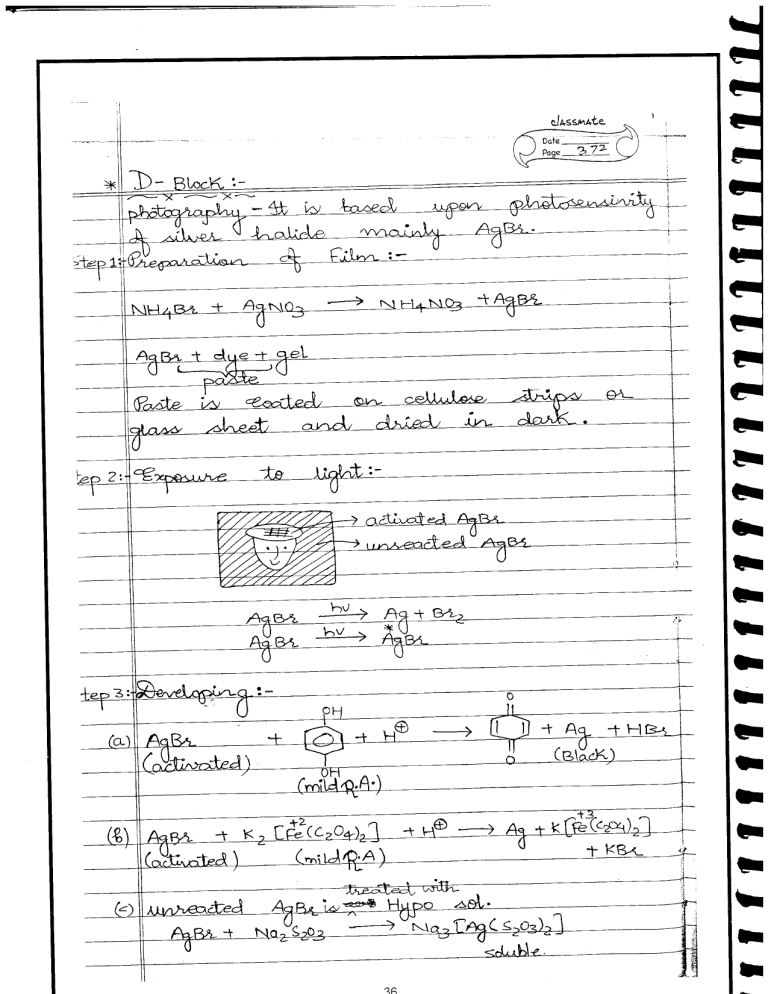 classmate
Date
Page 372
* D-Block :-
photography - It is based upon photosensivity
of silver halide mainly AgBr.
step 1:- Preparation of Film :-
NH4Br + AgNO3 → NH4NO3 + AgBr
AgBr + dye + gel
paste
Paste is coated on cellulose strips or
glass sheet and dried in dark.
tep 2:- Exposure to light :-
→ activated AgBr
→ unreacted AgBr
AgBr hν→ Ag + Br2
AgBr hν→ Ag*Br
tep 3:- Developing :-
OH O
(a) AgBr + + H⊕ → + Ag + HBr
(activated) OH O (Black)
(mild R.A.)
(b) AgBr + K2[Fe+2(C2O4)2] + H⊕ → Ag + K[Fe+3(C2O4)2]
(activated) (mild R.A) + KBr
(c) unreacted AgBr is treated with Hypo sol.
AgBr + Na2S2O3 → Na3[Ag(S2O3)2]
soluble.
36